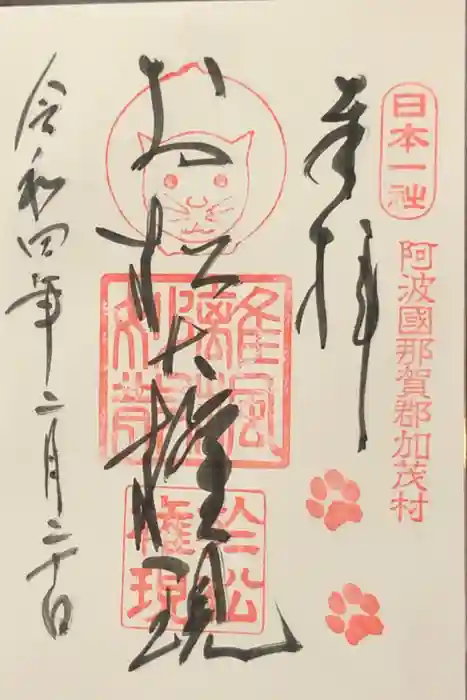 日本一社
阿波國那賀郡加茂村
奉拝
お松大権現
於松権現
令和四年二月二十日